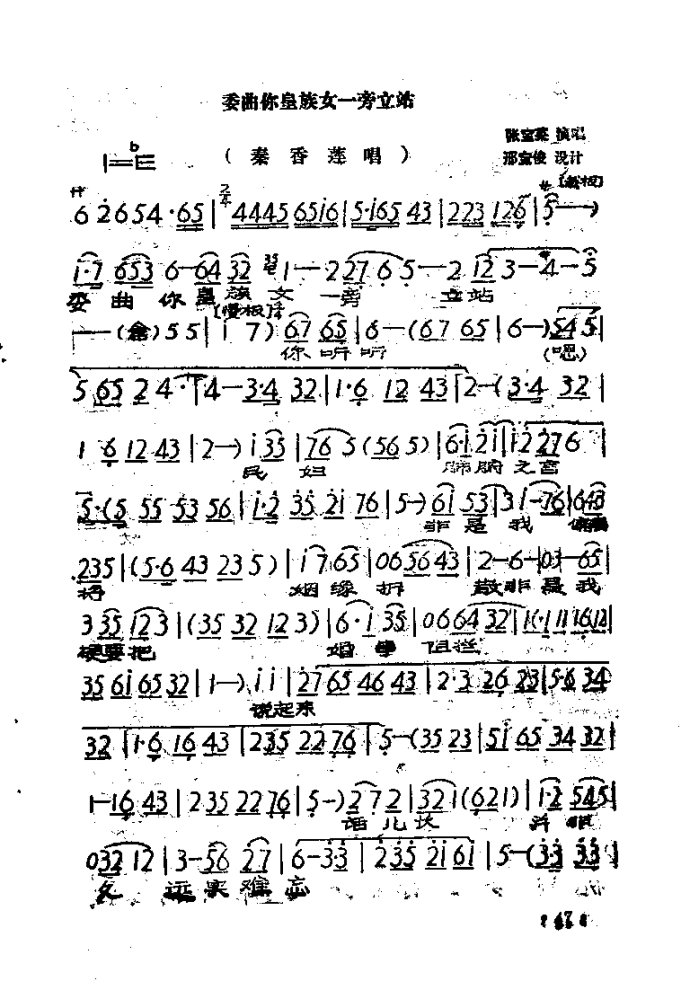 委曲你皇族女一旁立站
(秦香莲唱)
演唱
1=bE
邢宝俊 设计
6 2654·65 | 2/4 4445 6516 | 5·165 43 | 223 126 | 5—)
1·7 653 6—64 32 1—227 6 5—2 12 3—4—5
委曲你皇族女一旁 立站
[慢板]
——(仓) 5 5 | 1 7) 67 65 | 6—(67 65 | 6—) 545
你听听 (嗯)
5 65 2 4·4—3·4 32 | 1·6 12 43 | 2—(3·4 32 |
1 6 12 43 | 2—) 1 35 | 76 5 (56 5) | 61 21 | 12 276
民妇 肺腑之言
5·(5 55 53 56 | 1·2 35 21 76 | 5—) 61 53 | 31—76 | 643
非是我
235 | (5·6 43 235) | 17 65 | 06 56 43 | 2—6—| 03—65 |
将 姻缘拆 散非是我
3 35 123 | (35 32 123) | 6·1 35 | 06 64 32 | 1(·1 11 1612 |
硬要把 阻拦
35 61 65 32 | 1—) 1 1 | 27 65 46 43 | 2·3 26 23 | 5·6 34
说起来
32 | 1·6 16 43 | 235 22 76 | 5—(35 23 | 51 65 34 32 |
1—16 43 | 235 22 76 | 5—) 272 | 321 (621) | 1·2 545 |
话儿长 并非
032 12 | 3—56 27 | 6—33 | 235 21 61 | 5—(33 33 |
久远来难忘
47